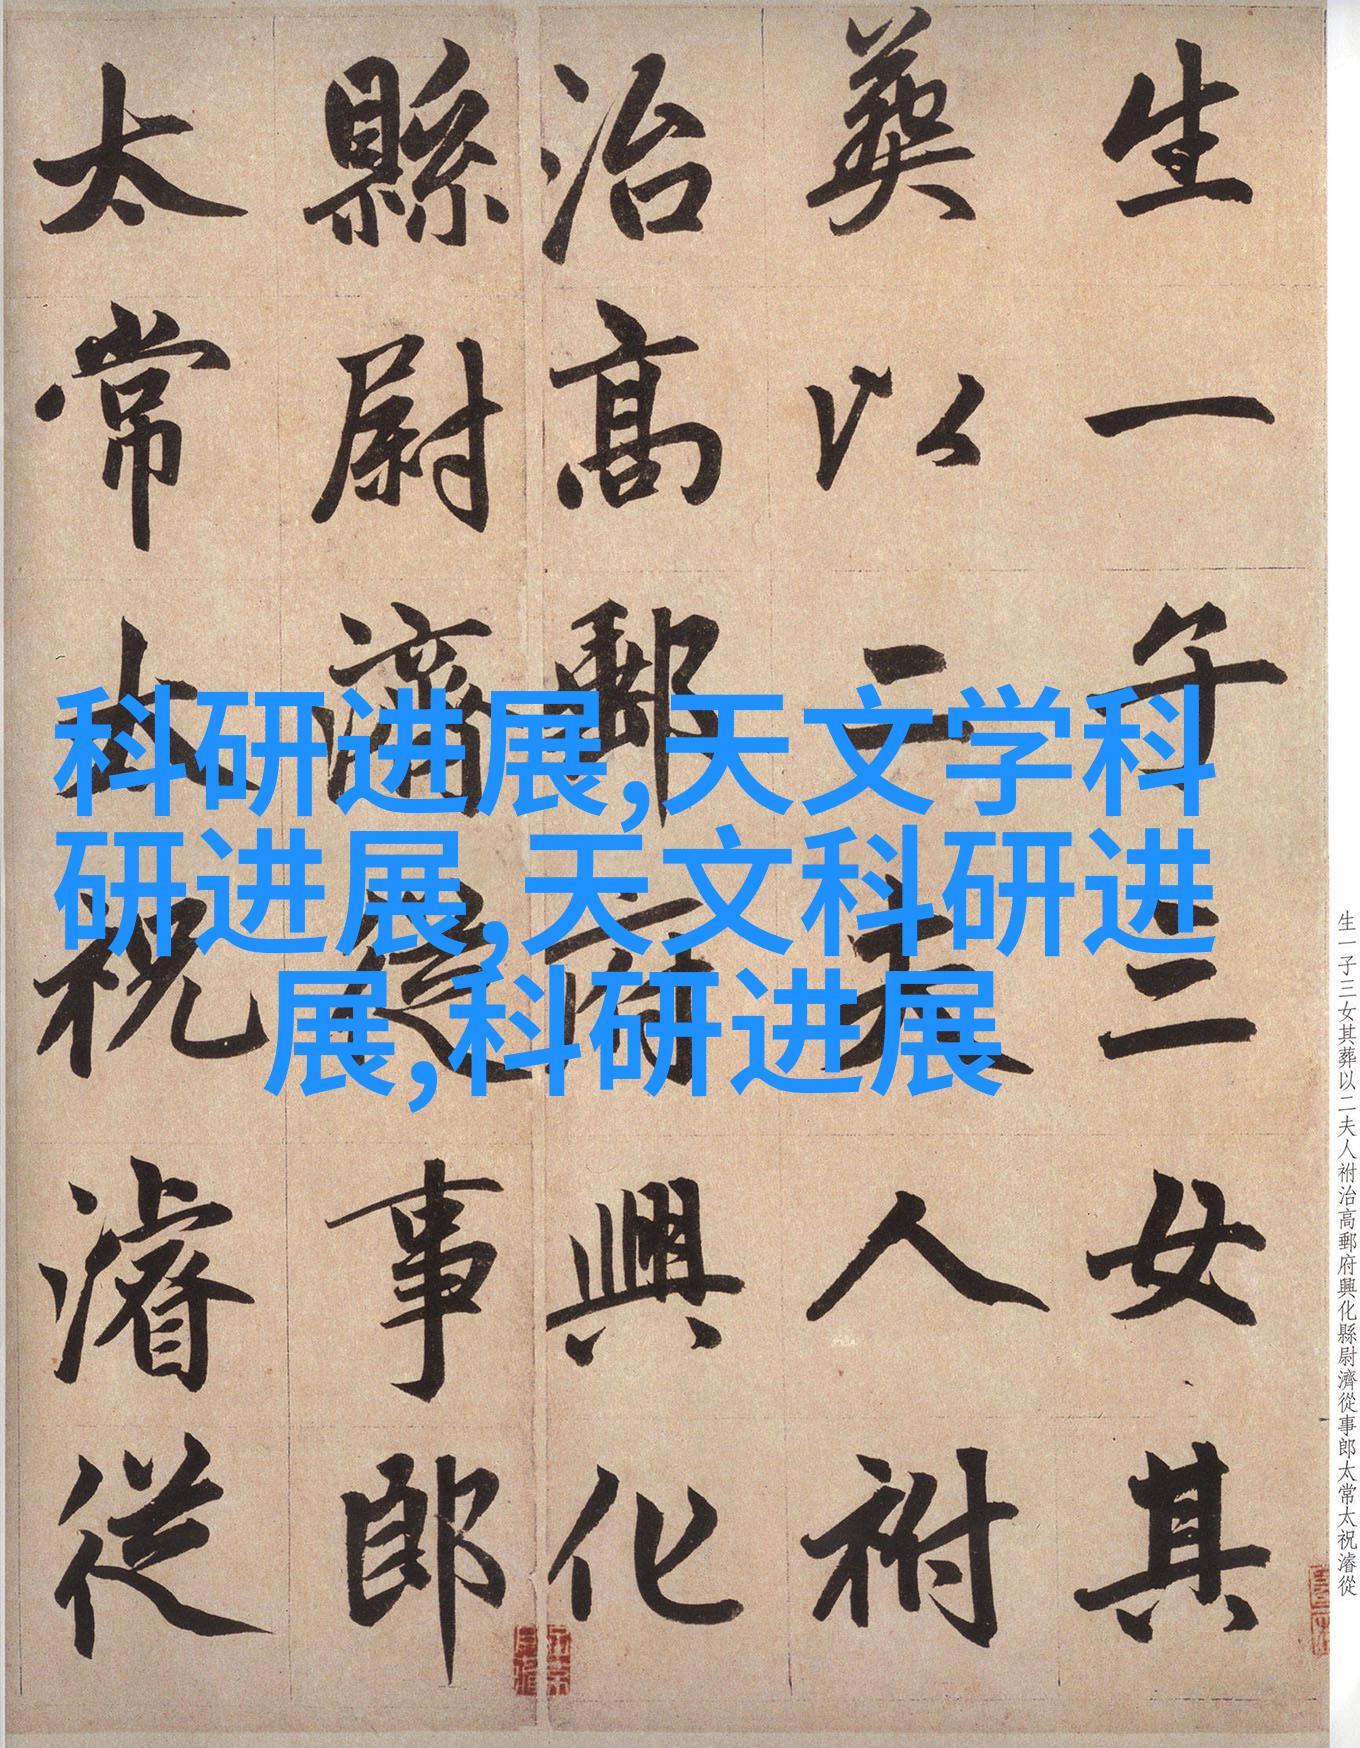 生一子三女其
葬以二夫人祔
治高郵府興化
縣尉濟從事郎
太常太祝濬從
科研进展,天文学科
研进展,天文科研进
展,科研进展
生一子三女其葬以二夫人祔治高郵府興化縣尉濟從事郎太常太祝濬從